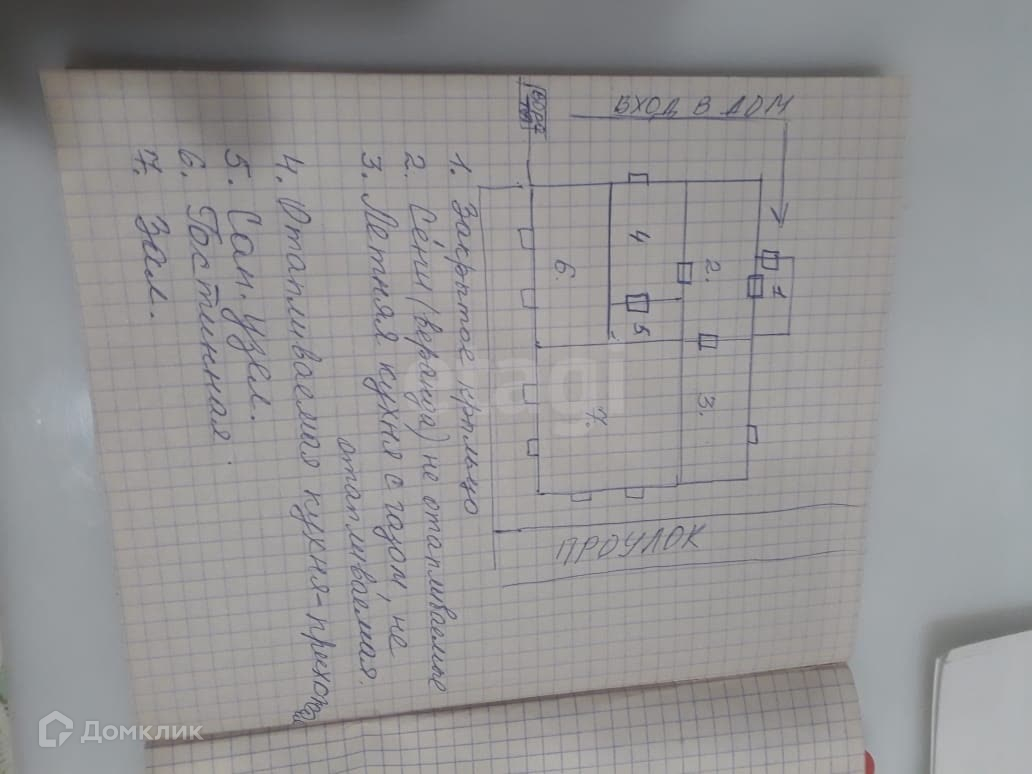 ВХОД В ДОМ
ВОРОТА
1
2.
3.
4
5
6.
7.
ПРОУЛОК
1. Закрытое крыльцо
2. Сени (веранда) не отапливаемые
3. Летняя кухня с газом, не
отапливаемая.
4. Отапливаемая кухня-прихожая
5. Сан. узел.
6. Гостинная.
7. Зал.
etagi
Домклик